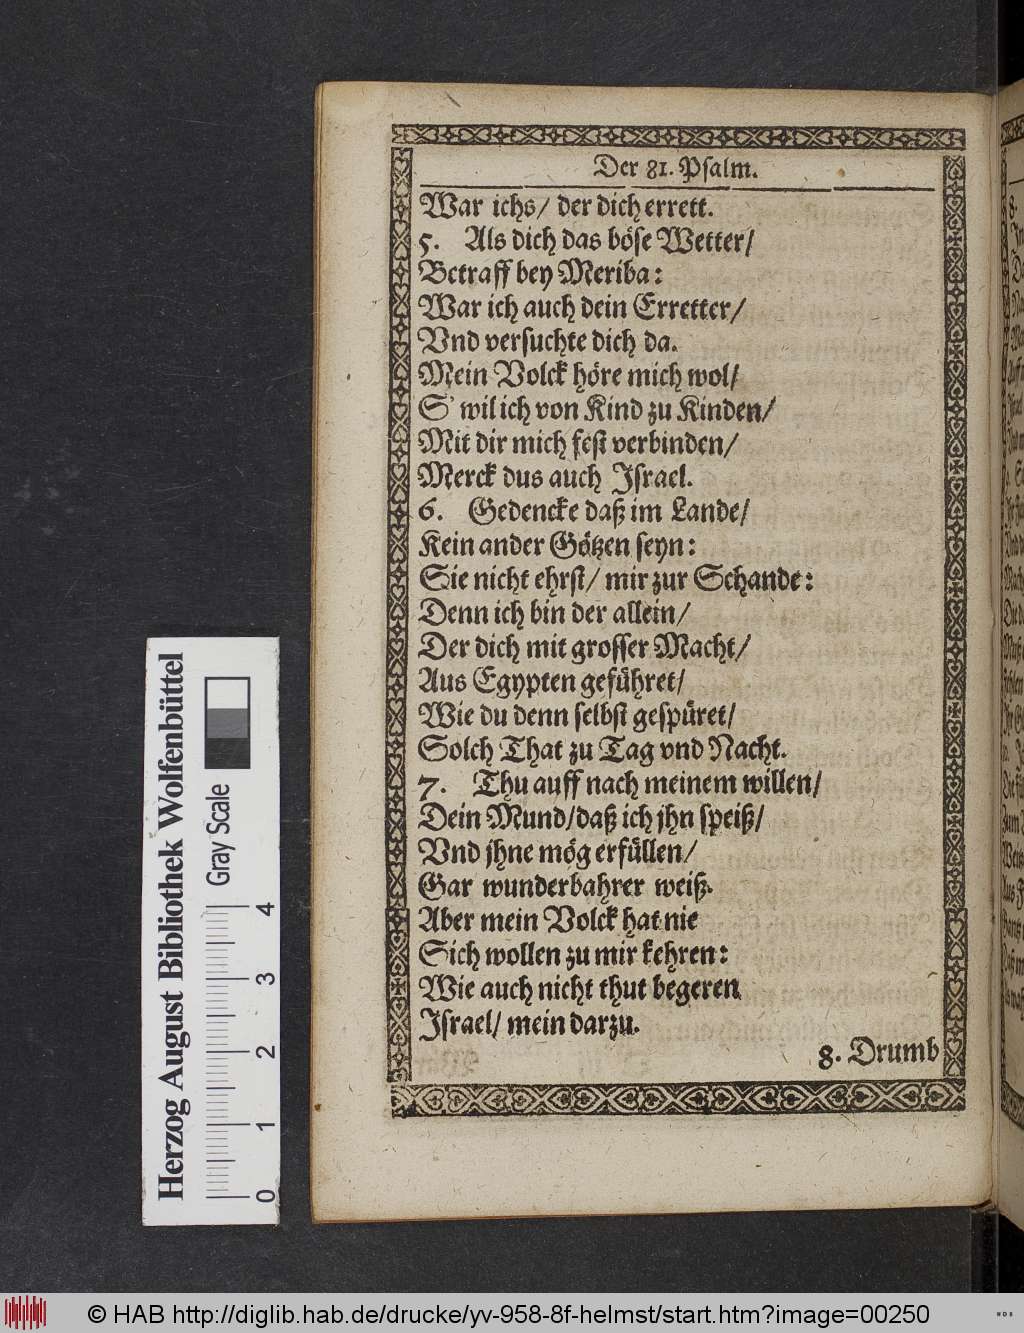 Der 81. Psalm.
War ichs/ der dich errett.
5. Als dich das böse Wetter/
Betraff bey Meriba:
War ich auch dein Erretter/
Vnd versuchte dich da.
Mein Volck höre mich wol/
S' wil ich von Kind zu Kinden/
Mit dir mich fest verbinden/
Merck dus auch Israel.
6. Gedencke daß im Lande/
Kein ander Götzen seyn:
Sie nicht ehrst/ mir zur Schande:
Denn ich bin der allein/
Der dich mit grosser Macht/
Aus Egypten geführet/
Wie du denn selbst gespüret/
Solch That zu Tag vnd Nacht.
7. Thu auff nach meinem willen/
Dein Mund/daß ich jhn speiß/
Vnd jhne mög erfüllen/
Gar wunderbahrer weiß.
Aber mein Volck hat nie
Sich wollen zu mir kehren:
Wie auch nicht thut begeren
Israel/ mein darzu.
8. Drumb
Herzog August Bibliothek Wolfenbüttel
Gray Scale
0 1 2 3 4
© HAB http://diglib.hab.de/drucke/yv-958-8f-helmst/start.htm?image=00250